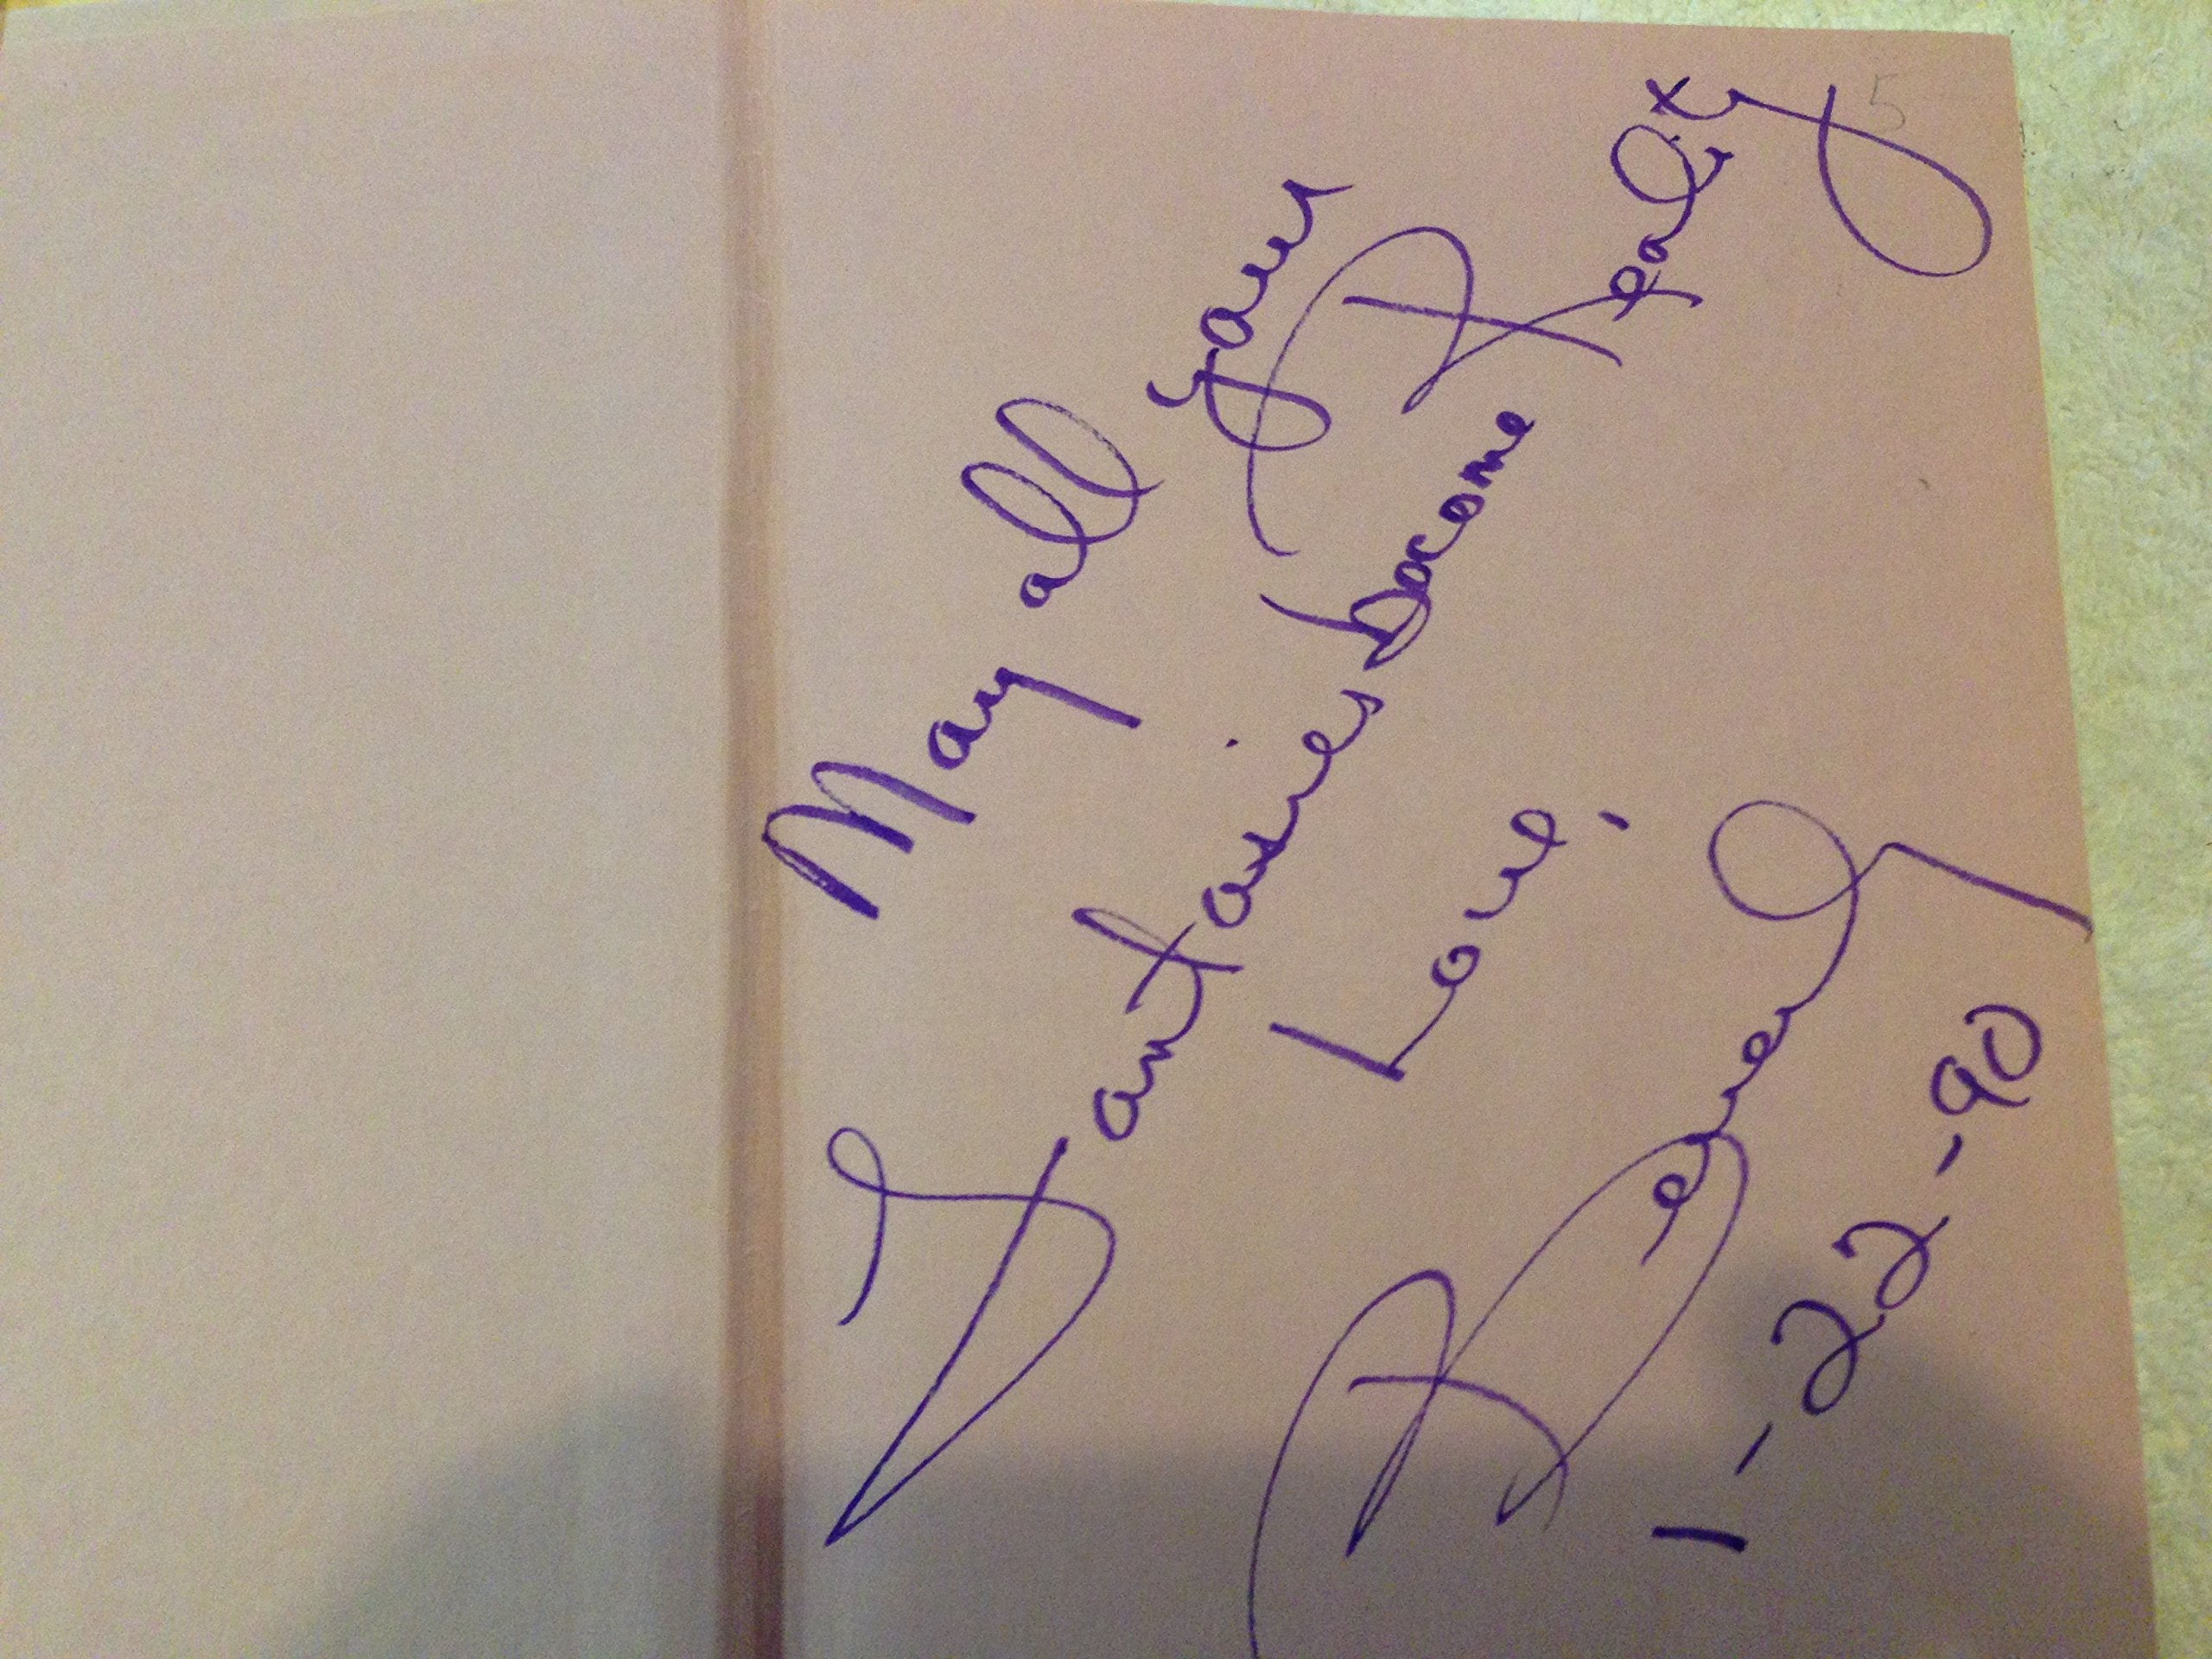 May all your
Fantasies become Reality
Love,
1-22-90
5